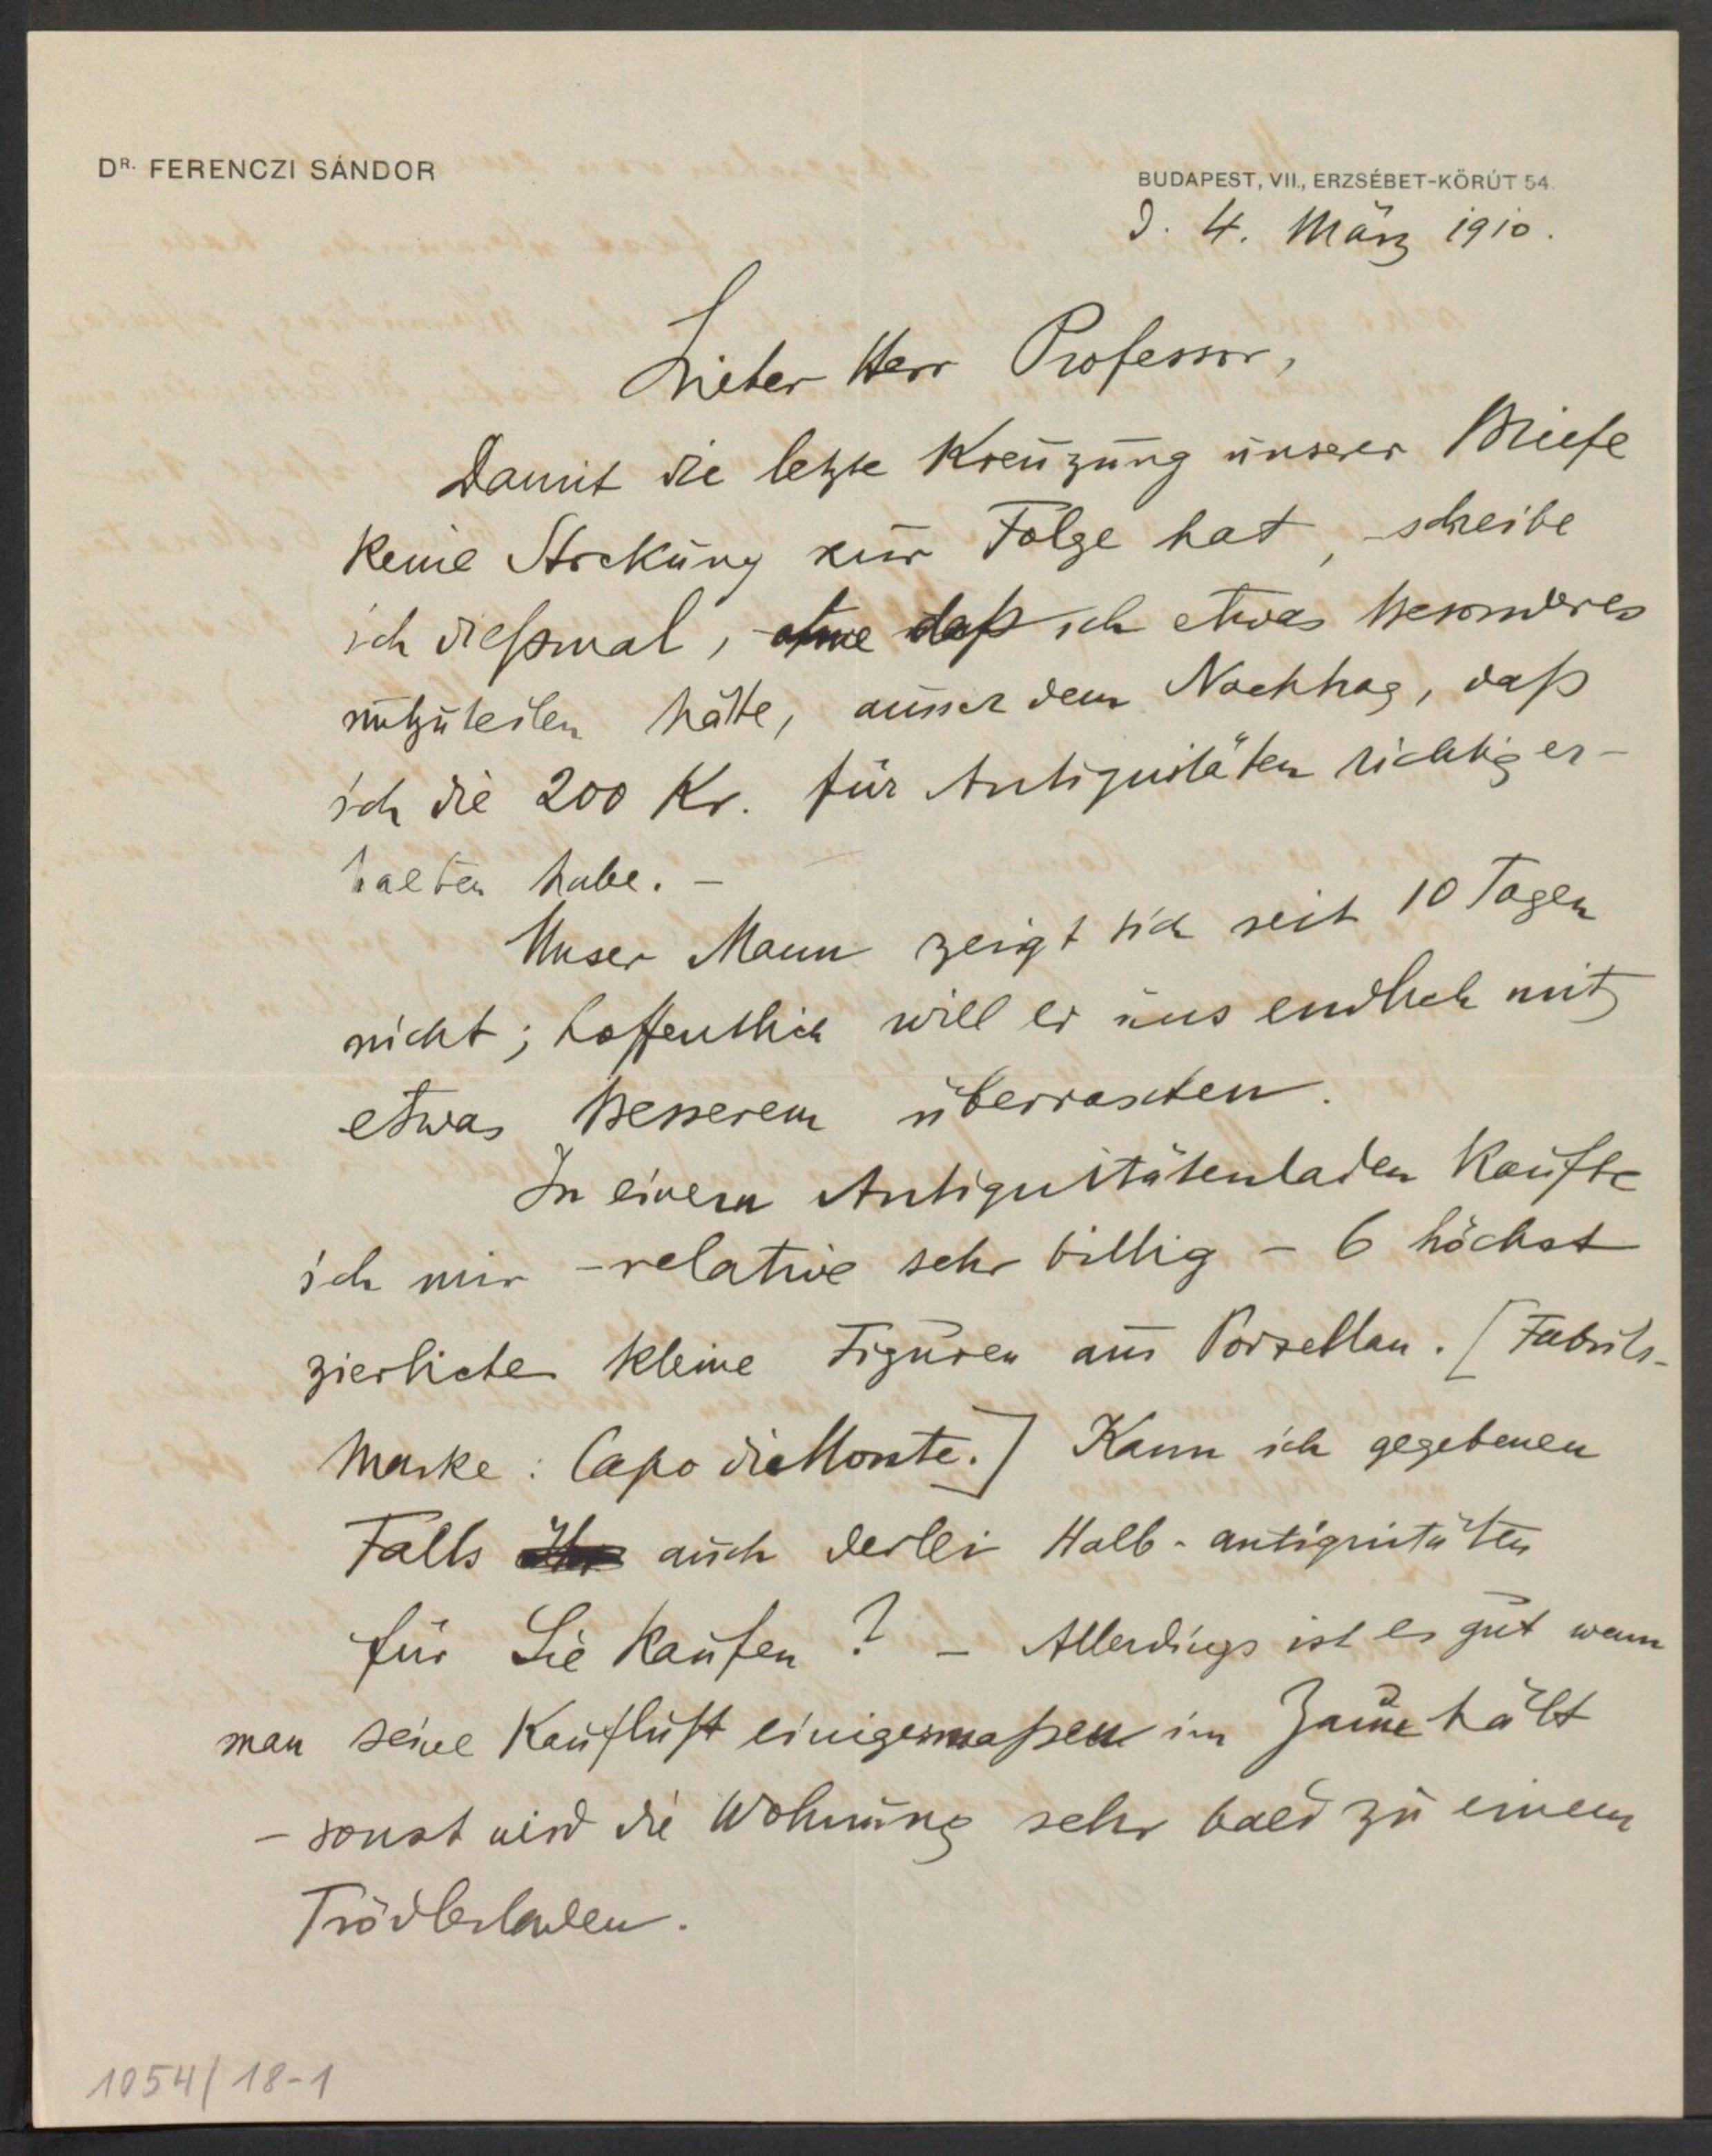 DR. FERENCZI SÁNDOR
BUDAPEST, VII., ERZSÉBET-KÖRÚT 54.
d. 4. März 1910.
Lieber Herr Professor,
Damit die letzte Kreuzung unserer Briefe
keine Stockung zur Folge hat, schreibe
ich dießmal, ohne daß ich etwas Besonderes
mitzuteilen hätte, ausser dem Nachtrag, daß
ich die 200 Kr. für Antiquitäten richtig er-
halten habe. –
Unser Mann zeigt sich seit 10 Tagen
nicht; hoffentlich will er uns endlich mit
etwas Besserem überraschen.
In einem Antiquitätenladen kaufte
ich mir – relative sehr billig – 6 höchst
zierliche kleine Figuren aus Porzellan. [Fabriks-
Marke: Capo di Monte.] Kann ich gegebenen
Falls auch derlei Halb-antiquitäten
für Sie kaufen? – Allerdings ist es gut wenn
man seine Kauflust einigermaßen im Zaume hält
– sonst wird die Wohnung sehr bald zu einem
Trödlerladen.
1054/18-1